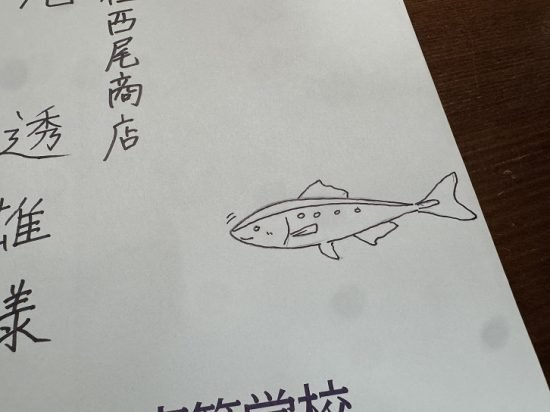 西尾商店
透雄様
等学校